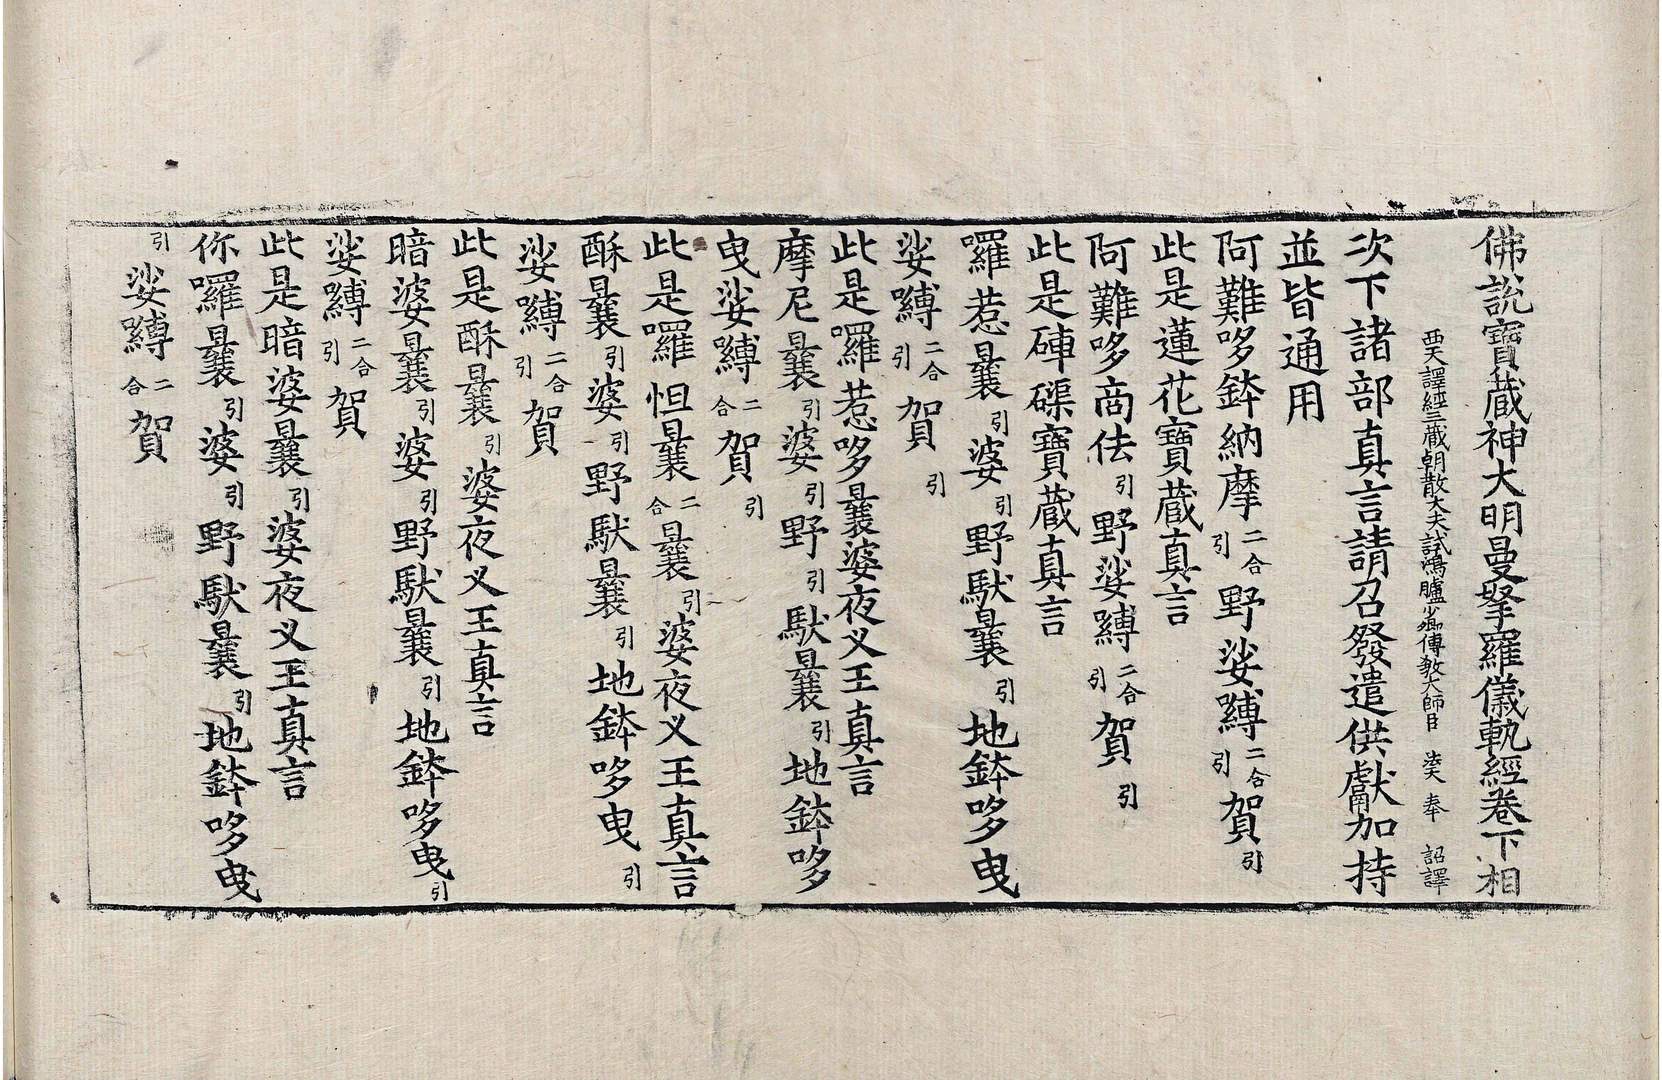 佛說寶藏神大明曼拏羅儀軌經卷下相
西天譯經三藏朝散大夫試鴻臚少卿傳教大師臣法天奉 詔譯
次下諸部真言請召發遣供獻加持
並皆通用
阿難哆鉢納摩二合引野娑嚩二合引賀引
此是蓮花寶藏真言
阿難哆商佉引野娑嚩二合引賀引
此是硨磲寶藏真言
囉惹曩引婆引野馱曩引地鉢哆曳
娑嚩二合引賀引
此是囉惹哆曩婆夜叉王真言
摩尼曩引婆引野引馱曩引地鉢哆
曳娑嚩二合賀引
此是囉怛曩二合曩引婆夜叉王真言
酥曩引婆引野馱曩引地鉢哆曳引
娑嚩二合引賀
此是酥曩引婆夜叉王真言
暗婆曩引婆引野馱曩引地鉢哆曳引
娑嚩二合引賀
此是暗婆曩引婆夜叉王真言
你囉曩引婆引野馱曩引地鉢哆曳
引娑嚩二合賀